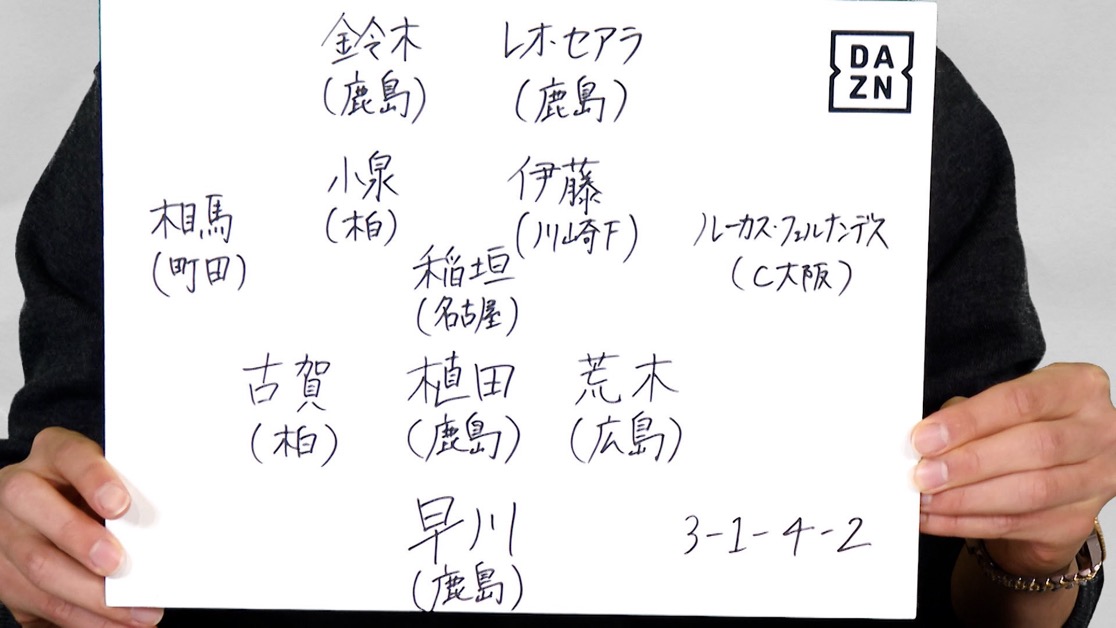 鈴木 レオ・セアラ
(鹿島) (鹿島)
DA
ZN
小泉 伊藤
(柏) (川崎F)
相馬 ルーカス・フェルナンデス
(町田) (C大阪)
稲垣
(名古屋)
古賀 植田 荒木
(柏) (鹿島) (広島)
早川
(鹿島)
3-1-4-2